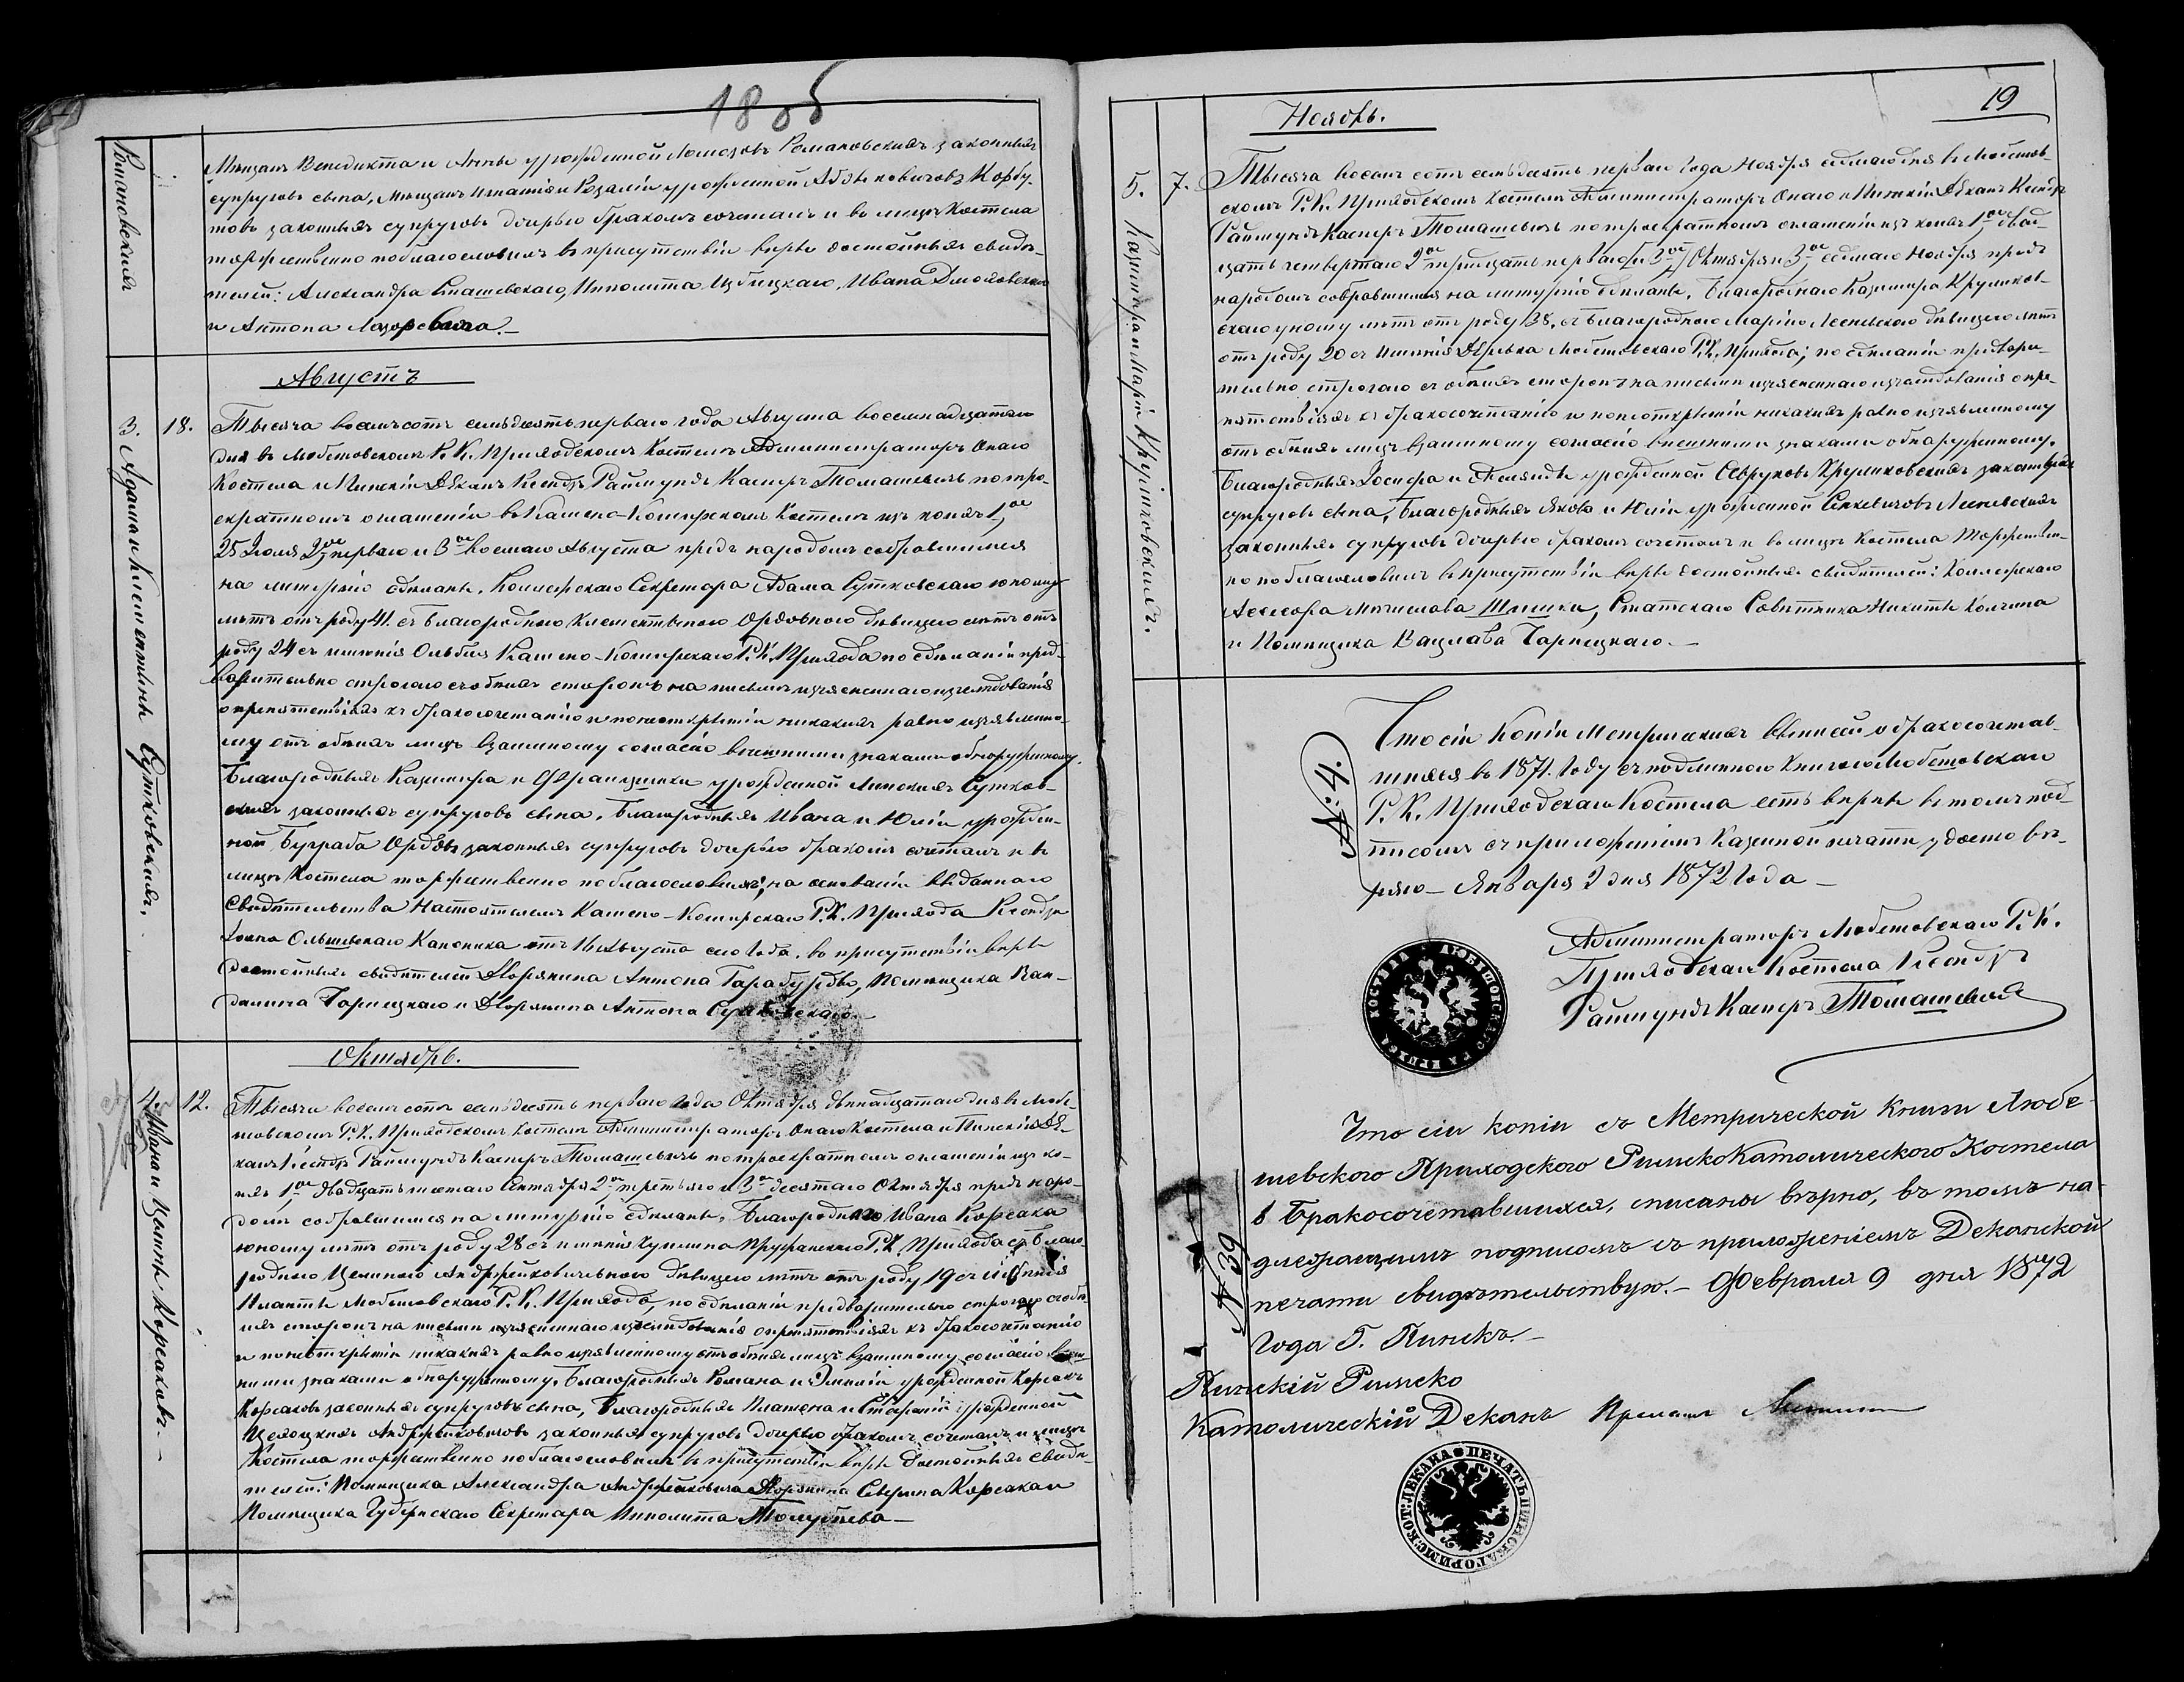 1886
Романовскихъ
Мѣщанъ Венедикта и Анны урожденной Ломозовъ Романовскихъ законныхъ
супруговъ сына, Мѣщанъ Игнатія и Розаліи урожденной Корбу-
товъ законныхъ супруговъ дочерью бракомъ сочеталъ и въ лицѣ Костела
торжественно поблагословилъ въ присутствіи вѣры достойныхъ свидѣ-
телей: Александра Сташевскаго, Ипполита Избицкаго, Ивана
и Антона
Августъ
3. 18. Адама и Клементины Сутковскихъ.
Тысяча восемьсотъ семьдесятъ перваго года Августа восемнадцатаго
дня въ Любешовскомъ Р. К. Приходскомъ Костелѣ Администраторъ Онаго
Костела и Пинскій Деканъ Ксендзъ Раймундъ Касперъ Томашевичъ по трое-
кратномъ оглашеніи въ Камено-Коширскомъ Костелѣ изъ коихъ 1ое
25 Іюля 2ое перваго и 3ое восьмаго Августа предъ народомъ собравшимся
на литургію сдѣланы, Коллежскаго Секретаря Адама Сутковскаго юношу
лѣтъ отъ роду 41. съ Благородною Клементиною Ордовною дѣвицею лѣтъ отъ
роду 24 съ имѣнія Ольбля Камено-Коширскаго Р. К. Прихода по сдѣланіи пред-
варительно строгаго съ обѣихъ сторонъ на письмѣ изъясненнаго изслѣдованія
о препятствіяхъ къ бракосочетанію и по неоткрытіи никакихъ равно изъявленно-
му отъ обѣихъ лицъ взаимному согласію внѣшними знаками обнаруженному,
Благородныхъ Казимира и Францишки урожденной Липскихъ Сутков-
скихъ законныхъ супруговъ сына, Благородныхъ Ивана и Юліи урожден-
ной Ордовъ законныхъ супруговъ дочерью бракомъ сочеталъ и въ
лицѣ Костела торжественно поблагословилъ; на основаніи выданнаго
Свидѣтельства Настоятелемъ Камено-Коширскаго Р. К. Прихода Ксендза
Ольшевскаго Каноника отъ Августа сего Года, въ присутствіи вѣры
достойныхъ свидѣтелей Дворянина Антона Тарабурды, Помѣщика Ван-
далина Чарнецкаго и Дворянина Антона Сутковскаго.
Октябрь.
4. 12. Ивана и Целины Корсаковъ.
Тысяча восемьсотъ семьдесятъ перваго года Октября двѣнадцатаго дня въ Любе-
шовскомъ Р. К. Приходскомъ Костелѣ Администраторъ Онаго Костела и Пинскій Де-
канъ Ксендзъ Раймундъ Касперъ Томашевичъ по троекратномъ оглашеніи изъ ко-
ихъ 1ое двадцать шестаго Сентября 2ое третьяго и 3ое десятаго Октября предъ наро-
домъ собравшимся на литургію сдѣланы, Благороднаго Ивана Корсака
юношу лѣтъ отъ роду 28 съ имѣнія Пружанскаго Р. К. Прихода съ Благо-
родною Целиною Андржейковичевною дѣвицею лѣтъ отъ роду 19 съ имѣнія
Любешовскаго Р. К. Прихода, по сдѣланіи предварительно строгаго съ обѣ-
ихъ сторонъ на письмѣ изъясненнаго изслѣдованія о препятствіяхъ къ бракосочетанію
и по неоткрытіи никакихъ равно изъявленному отъ обѣихъ лицъ взаимному согласію внѣш-
ними знаками обнаруженному, Благородныхъ Романа и Эмиліи урожденной Корсакъ
Корсаковъ законныхъ супруговъ сына, Благородныхъ Платона и Стефаніи урожденной
Андржейковичовъ законныхъ супруговъ дочерью бракомъ сочеталъ и въ лицѣ
Костела торжественно поблагословилъ въ присутствіи вѣры достойныхъ свидѣ-
телей: Помѣщика Александра Андржейковича Дворянина Северина Корсака и
Помѣщика Губернскаго Секретаря Ипполита
19
Ноябрь.
5. 7. Казимира и Маріи Круликовскихъ.
Тысяча восемьсотъ семьдесятъ перваго Года Ноября седьмаго дня въ Любешов-
скомъ Р. К. Приходскомъ Костелѣ Администраторъ Онаго и Пинскій Деканъ Ксендзъ
Раймундъ Касперъ Томашевичъ по троекратномъ оглашеніи изъ коихъ 1ое двад-
цать четвертаго 2ое тридцать перваго Октября и 3ое седьмаго Ноября предъ
народомъ собравшимся на литургію сдѣланы, Благороднаго Казимира Круликов-
скаго юношу лѣтъ отъ роду 38, съ Благородною Маріею дѣвицею лѣтъ
отъ роду 20 съ имѣнія Любешовскаго Р. К. Прихода; по сдѣланіи предвари-
тельно строгаго съ обѣихъ сторонъ на письмѣ изъясненнаго изслѣдованія о пре-
пятствіяхъ къ бракосочетанію и по неоткрытіи никакихъ равно изъявленному
отъ обѣихъ лицъ взаимному согласію внѣшними знаками обнаруженному,
Благородныхъ Іосифа и урожденной Круликовскихъ законныхъ
супруговъ сына, Благородныхъ Якова и Юліи урожденной
законныхъ супруговъ дочерью бракомъ сочеталъ и въ лицѣ Костела торжествен-
но поблагословилъ въ присутствіи вѣры достойныхъ свидѣтелей: Коллежскаго
Асессора Мечислава Шишки, Статскаго Совѣтника Никиты
и Помѣщика Вацлава Чарнецкаго.
№ 4.
Что сіи Копіи Метрическихъ выписей о бракосочетав-
шихся въ 1871. Году съ подлинною Книгою Любешовскаго
Р. К. Приходскаго Костела есть вѣрны въ томъ под-
писомъ съ приложеніемъ Казенной печати удостовѣ-
ряю — Января 2 дня 1872 Года —
Администраторъ Любешовскаго Р. К.
Приходскаго Костела Ксендзъ
Раймундъ Касперъ Томашевичъ
№ 39
Что сіи копіи съ Метрической Книги Любе-
шевскаго Приходского РимскоКатолическаго Костела
о Бракосочетавшихся, списаны вѣрно, въ томъ на-
длежащимъ подписомъ съ приложеніемъ Деканской
печати свидѣтельствую. — Февраля 9 дня 1872
Года Г. Пинскъ. —
Пинскій Римско
Католическій Деканъ